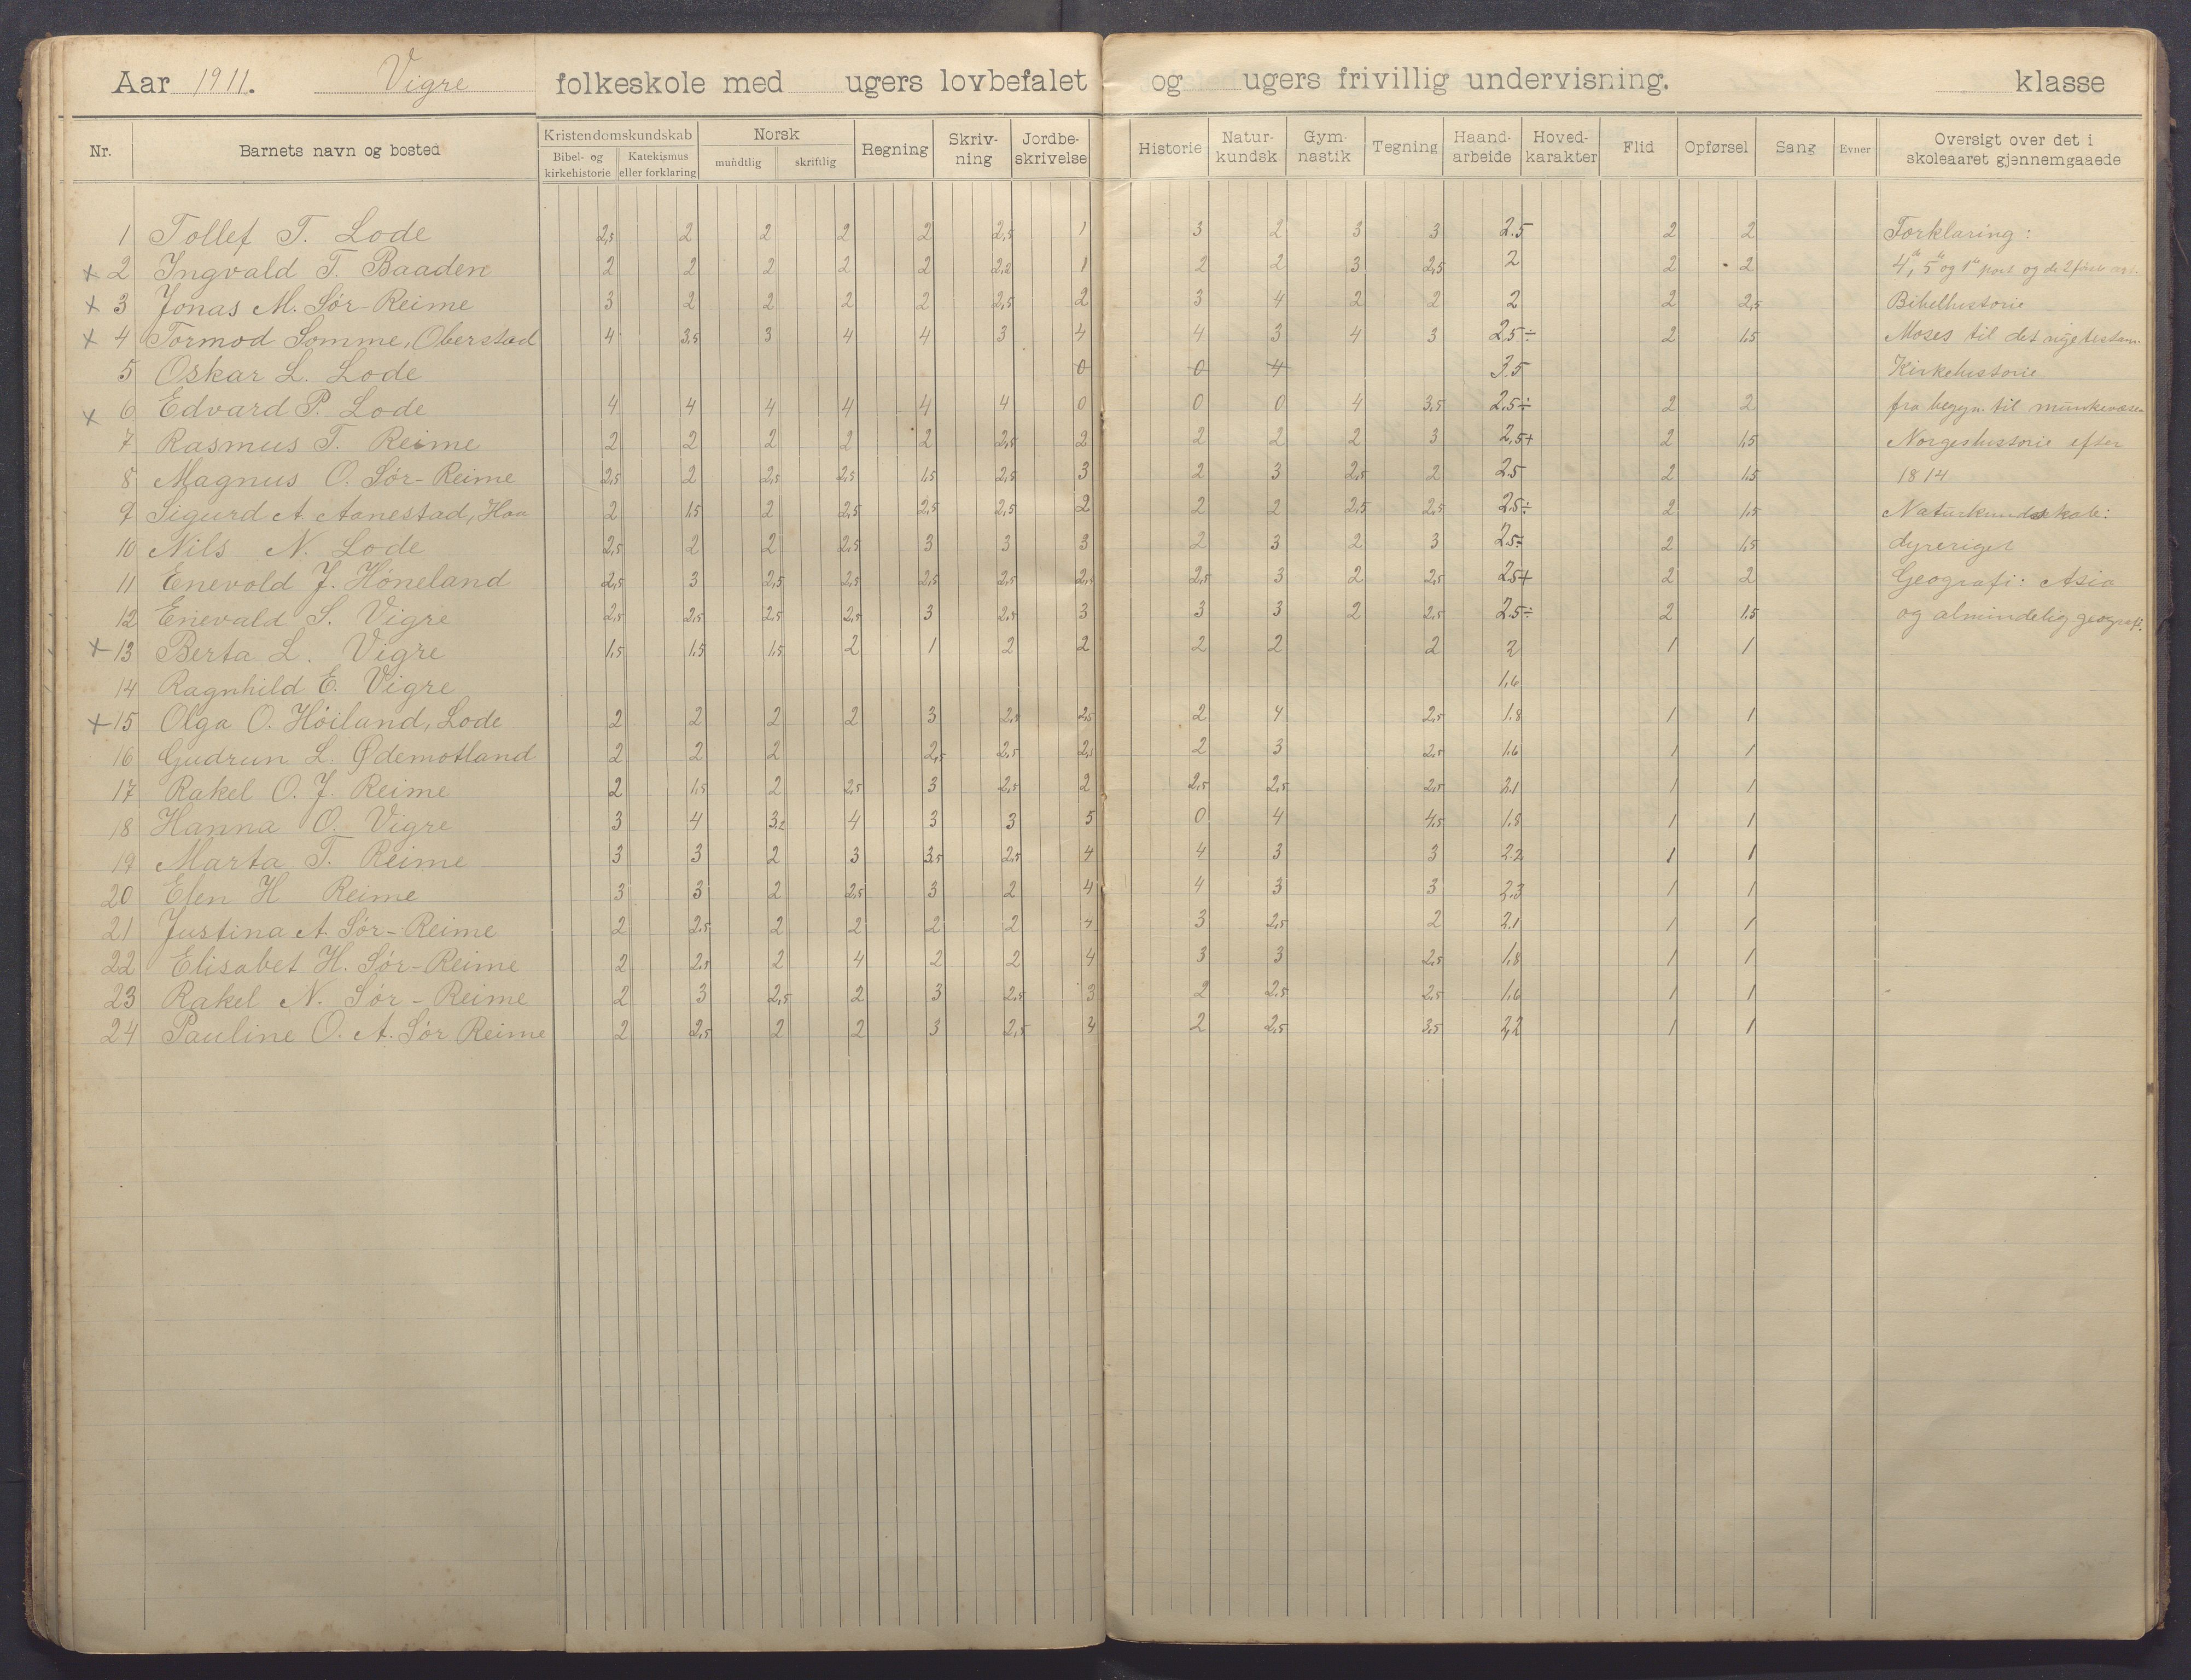 Aar 1911. Vigre folkeskole med ugers lovbefalet og ugers frivillig undervisning. klasse
Nr. Barnets navn og bosted Kristendomskundskab Bibel- og kirkehistorie Katekismus eller forklaring Norsk mundtlig skriftlig Regning Skriv-ning Jordbe-skrivelse Historie Natur-kundsk Gym-nastik Tegning Haand-arbeide Hoved-karakter Flid Opførsel Sang Evner Oversigt over det i skoleaaret gjennemgaaede
1 Tollef T. Lode 2,5 2 2 2 2 2,5 1 3 2 3 3 2.5 2 2 Forklaring:
x 2 Ingvald T. Baaden 2 2 2 2 2 2,2 1 2 2 3 2,5 2 2 2 4, 5 og 1 part og de 2 første
x 3 Jonas M. Sør-Reime 3 2 2 2 2 2,5 2 3 4 2 2 2 2 2,5 Bibelhistorie
x 4 Tormod Somme, Oberstad 4 3,5 3 4 4 3 4 4 3 4 3 2,5÷ 2 1,5 Moses til det nye testam.
5 Oskar L. Lode 0 0 4 3.5 Kirkehistorie
x 6 Edvard P. Lode 4 4 4 4 4 4 0 0 0 4 3,5 2,5÷ 2 2 fra begyn. til munkevæsen
7 Rasmus T. Reime 2 2 2 2 2 2,5 2 2 2 2 3 2,5+ 2 1,5 Norgeshistorie efter
8 Magnus O. Sør-Reime 2,5 2 2,5 2,5 1,5 2,5 3 2 3 2,5 2 2.5 2 1,5 1814
9 Sigurd A. Aanestad, Haa 2 1,5 2 2,5 2,5 2,5 2 2 2 2,5 2,5 2.5÷ 2 1,5 Naturkundskab:
10 Nils N. Lode 2,5 2 2 2,5 3 3 3 2 3 2 3 2.5÷ 2 1,5 dyreriget
11 Enevold J. Høneland 2,5 3 2,5 2,5 2,5 2,5 2,5 2,5 3 2 2,5 2.5+ 2 2 Geografi: Asia
12 Enevald S. Vigre 2,5 2,5 2,5 2,5 3 2,5 3 3 3 2 2,5 2.5÷ 2 1,5 og almindelig geografi.
x 13 Berta L. Vigre 1,5 1,5 1,5 2 1 2 2 2 2 2 2 1 1
14 Ragnhild E. Vigre 1,6
x 15 Olga O. Høiland, Lode 2 2 2 2 3 2,5 2,5 2 4 2,5 1.8 1 1
16 Gudrun L. Ødemotland 2 2 2 2,5 2,5 2,5 2 3 2,5 1.6 1 1
17 Rakel O. J. Reime 2 1,5 2 2,5 3 2,5 2 2,5 2,5 2,5 2.1 1 1
18 Hanna O. Vigre 3 4 3,2 4 3 3 5 0 4 4,5 1.8 1 1
19 Marta T. Reime 3 3 2 3 3,5 2,5 4 4 3 3 2.2 1 1
20 Elen H Reime 3 3 2 2,5 3 2 4 4 3 3 2.3 1 1
21 Justina A. Sør-Reime 2 2,5 2 2 2 2 4 3 2,5 2 2.1 1 1
22 Elisabet H. Sør-Reime 2 2,5 2 4 2 2 4 3 3 2,5 1.8 1 1
23 Rakel N. Sør-Reime 2 3 2,5 2 3 2,5 3 2 2,5 2,5 1.6 1 1
24 Pauline O. A. Sør Reime 2 2,5 2 2 3 2,5 4 2 2,5 3,5 2,2 1 1